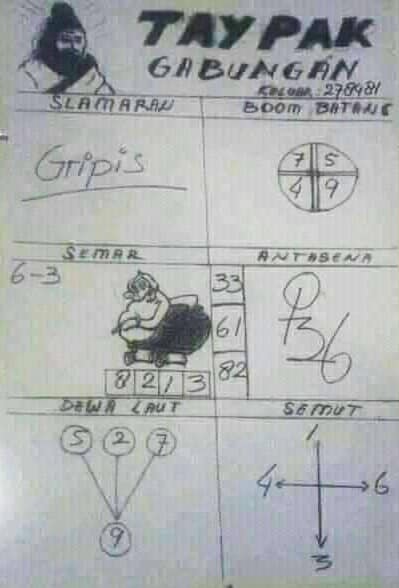 TAYPAK
GABUNGAN
KELUAR : 278481
SLAMARAN
BOOM BATANG
Gripis
7 5
4 9
SEMAR
ANTASENA
6-3
33
61
82
8 2 1 3
36
DEWA LAUT
SEMUT
5 2 7
9
1
4 6
3